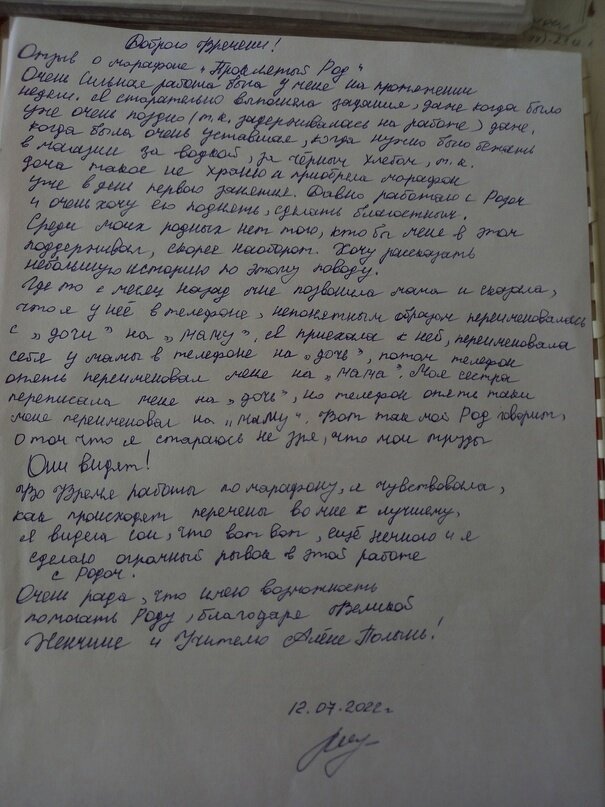 Доброго Времени!
Отзыв о марафоне „Проклятый Род"
Очень сильная работа была у меня на протяжении
недели. Я старательно выполняла задания, даже когда было
уже очень поздно (т.к. задерживалась на работе) даже,
когда была очень уставшая, когда нужно было бежать
в магазин за водкой, за чёрным хлебом, т.к.
дома такое не храню и приобрела марафон
уже в дни первого занятия. Давно работаю с Родом
и очень хочу его поднять, сделать благостным.
Среди моих родных нет того, кто бы меня в этом
поддерживал, скорее наоборот. Хочу рассказать
небольшую историю по этому поводу.
Где то с месяц назад мне позвонила мама и сказала,
что я у неё в телефоне, непонятным образом переименовалась
с „дочи" на „маму". Я приехала к ней, переименовала
себя у мамы в телефоне на „дочь", потом телефон
опять переименовал меня на „мама". Моя сестра
переписала меня на „дочь", но телефон опять таки
меня переименовал на „маму". Вот так мой Род говорит,
о том что я стараюсь не зря, что мои труды
Они видят!
Во Время работы по марафону, я чувствовала,
как происходят перемены во мне к лучшему,
я видела сон, что вот вот, ещё немного и я
сделаю огромный рывок в этой работе
с Родом.
Очень рада, что имею возможность
помогать Роду, благодаря Великой
Женщине и Учителю Алёне Полынь!
12.07.2022г